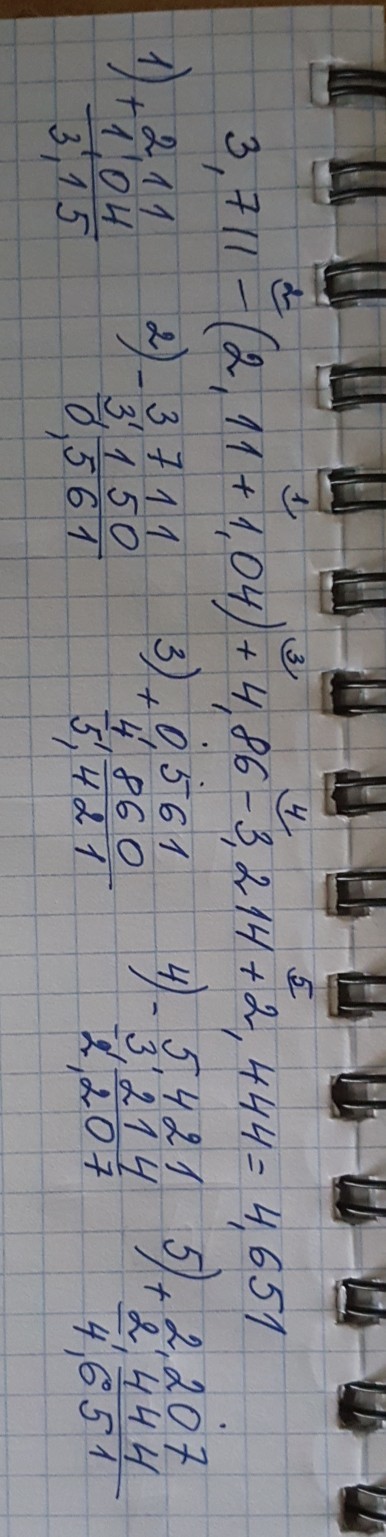 2 1 3 4 5
3,711 - (2,11 + 1,04) + 4,86 - 3,214 + 2,444 = 4,651
1) + 2,11
1,04
3,15
2) - 3 711
3,150
0,561
3) + 0,561
4,860
5,421
4) - 5 421
3,214
2,207
5) + 2,207
2,444
4,651